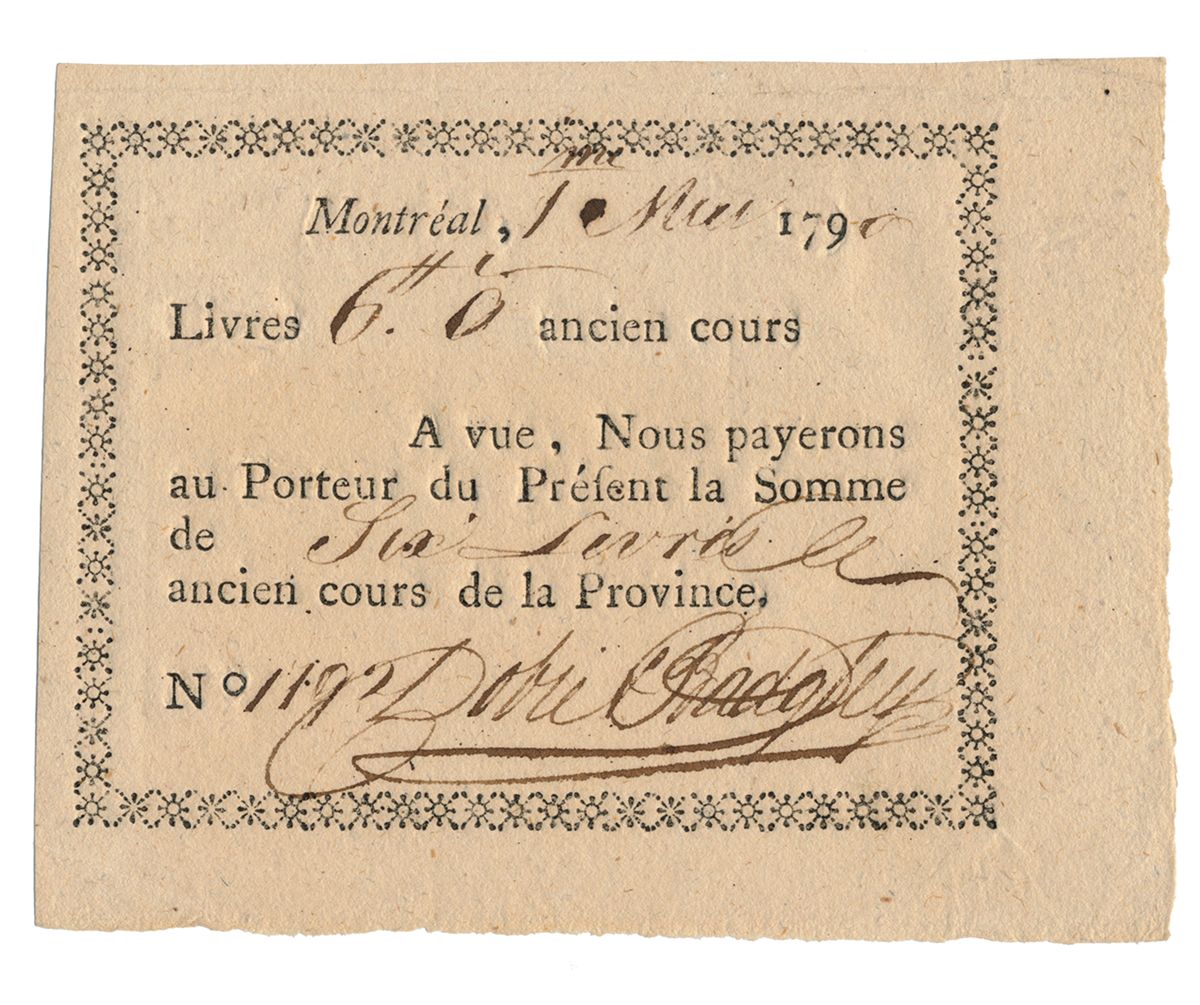 Montréal, 1me Mai 1790
Livres 6.# 0 ancien cours
A vue, Nous payerons
au Porteur du Préſent la Somme
de Six Livres
ancien cours de la Province.
No 1192 Dobie & Badgley